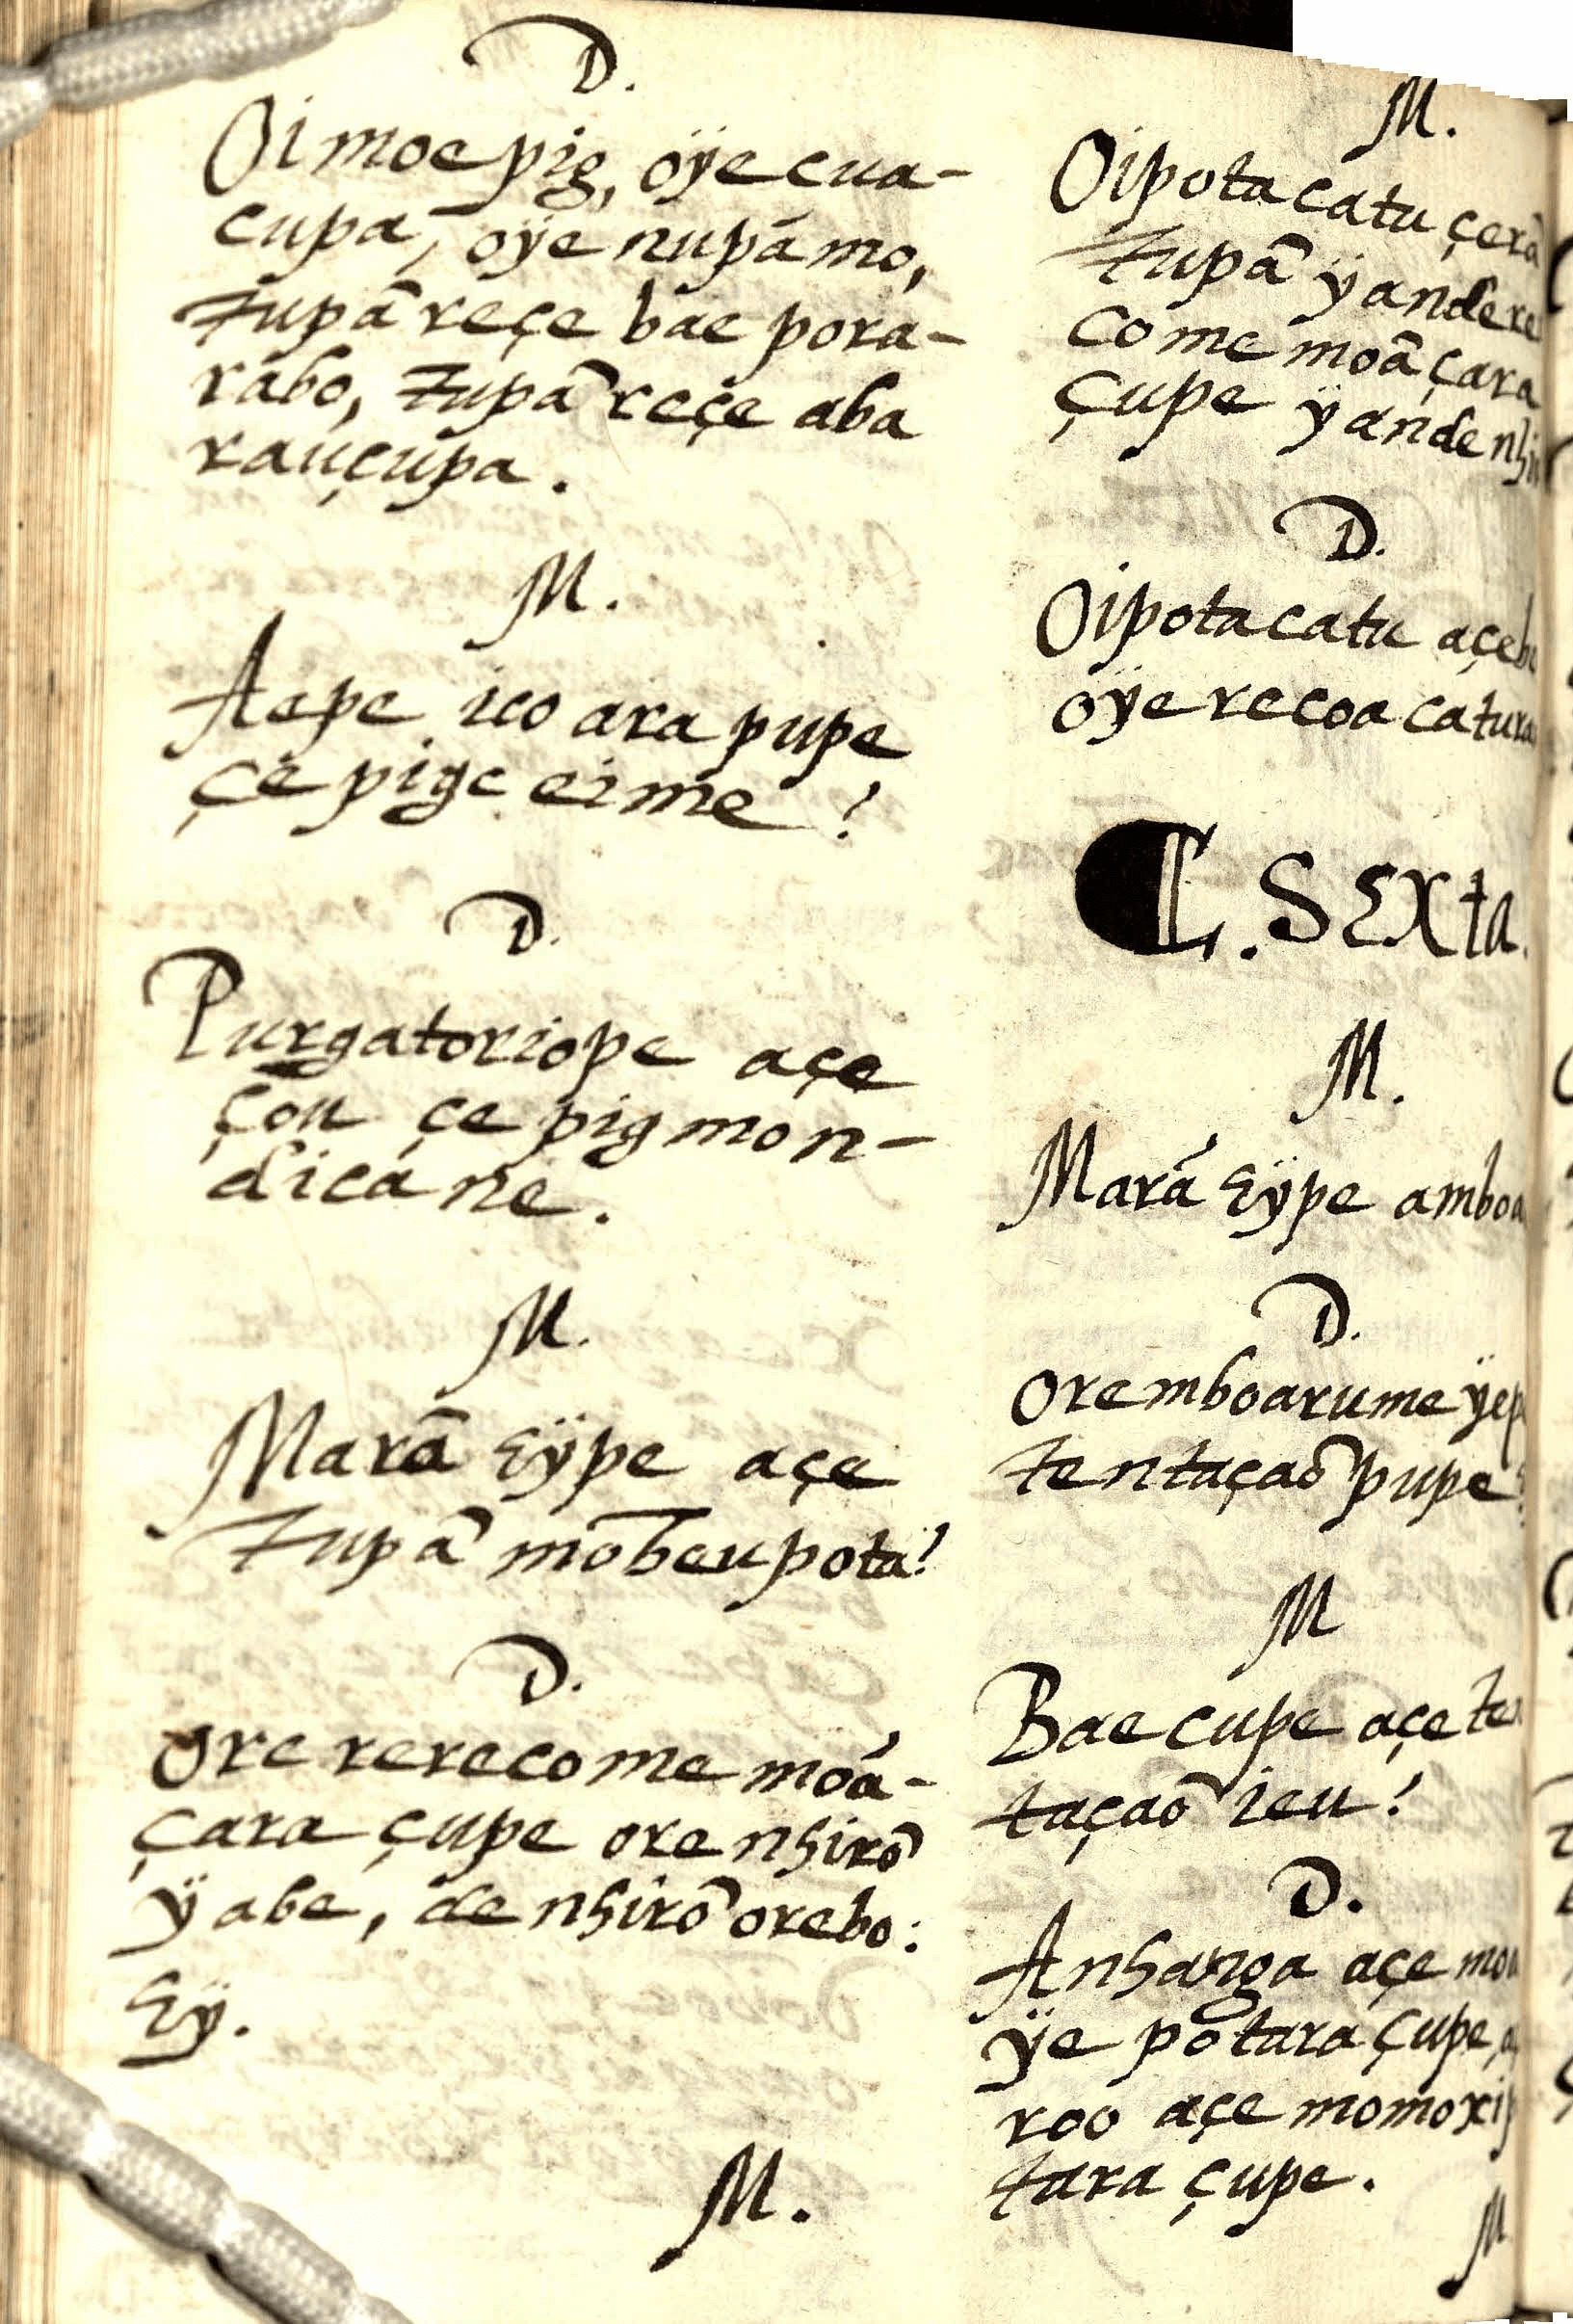 D.
Oimoepig, oÿecua-
cupa, oÿe nupámo,
tupã reçe bae pora-
rábo, tupã reçe aba
rauçupa.
M.
Aepe ico ara pupe
çe pige eime?
D.
Purgatoriope açe
çou çe pig mon-
dica ne.
M.
Marã Eÿpe açe
tupã mõbeu pota?
D.
Ore rerecome moá-
çara çupe ore nhirõ
ÿabe, de nhirõ orebo:
Eÿ.
M.
M.
Oipota catu çerã
tupã ÿandere
come moãçara
çupe ÿande
D.
Oipota catu
oÿe recoa
¶. SEXta.
M.
Marã Eÿpe
D.
Ore mboarume
tentaçaõ pupe
M
Bae cupe açe
taçaõ ieu?
D.
Anhanga açe
ÿe potara çupe,
roo açe
tara çupe.
M